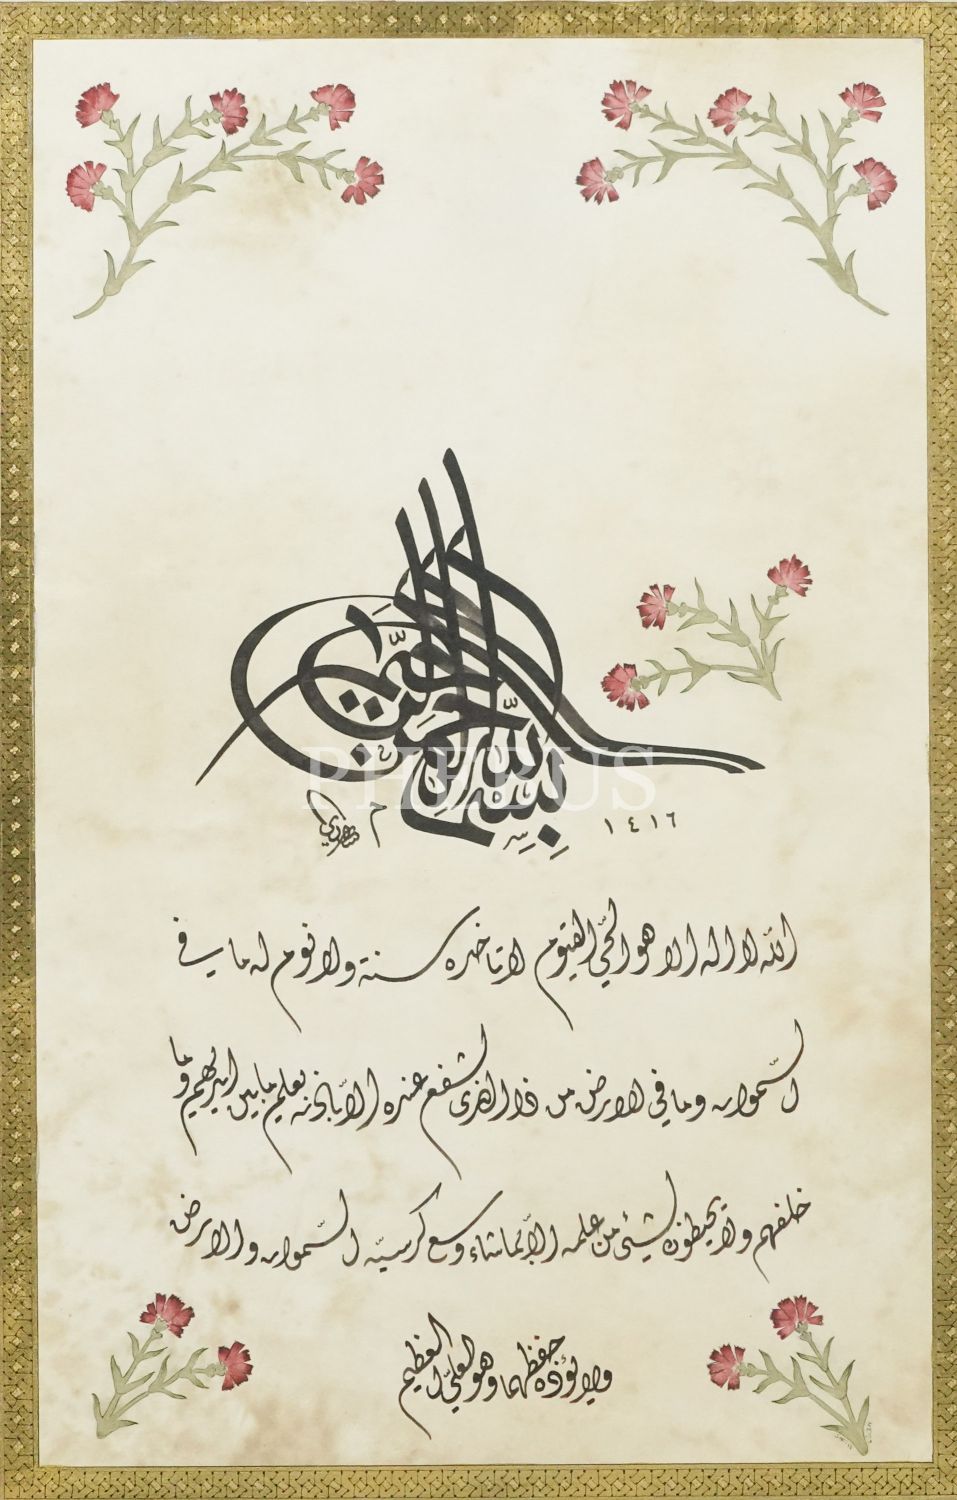 بسم الله الرحمن الرحيم
PHEBUS
م
١٤١٦
الله لا اله الا هو الحي القيوم لا تاخذه سنة ولا نوم له ما في
السموات وما في الارض من ذا الذي يشفع عنده الا باذنه يعلم ما بين ايديهم وما
خلفهم ولا يحيطون بشيء من علمه الا بما شاء وسع كرسيه السموات والارض
ولا يؤده حفظهما وهو العلي العظيم